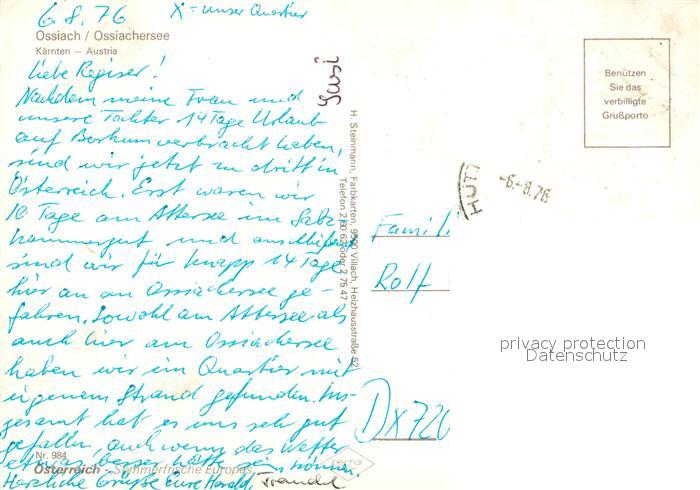 6.8.76 X = unser Quartier
Ossiach / Ossiachersee
Kärnten — Austria
Liebe Regiser!
Nachdem meine Frau und
unsere Tochter 14 Tage Urlaub
auf Borkum verbracht haben,
sind wir jetzt zu dritt in
Österreich. Erst waren wir
10 Tage am Attersee im Salz-
kammergut und anschließend
sind wir für knapp 14 Tage
hier an den Ossiachersee ge-
fahren. Sowohl am Attersee als
auch hier am Ossiachersee
haben wir ein Quartier mit
eigenem Strand gefunden. Ins-
gesamt hat es uns sehr gut
gefallen, auch wenn das Wetter
etwas besser hätte sein können.
Herzliche Grüße Eure Harald,
Susi
Nr. 984
Österreich - Sommerfrische Europas
H. Steinmann, Farbkarten, 9500 Villach, Heizhausstraße 52
Telefon 2 80 62 oder 2 75 47
Benützen
Sie das
verbilligte
Grußporto
HUTT
-6.-8.76
Famili
Rolf
privacy protection
Datenschutz
D x 720